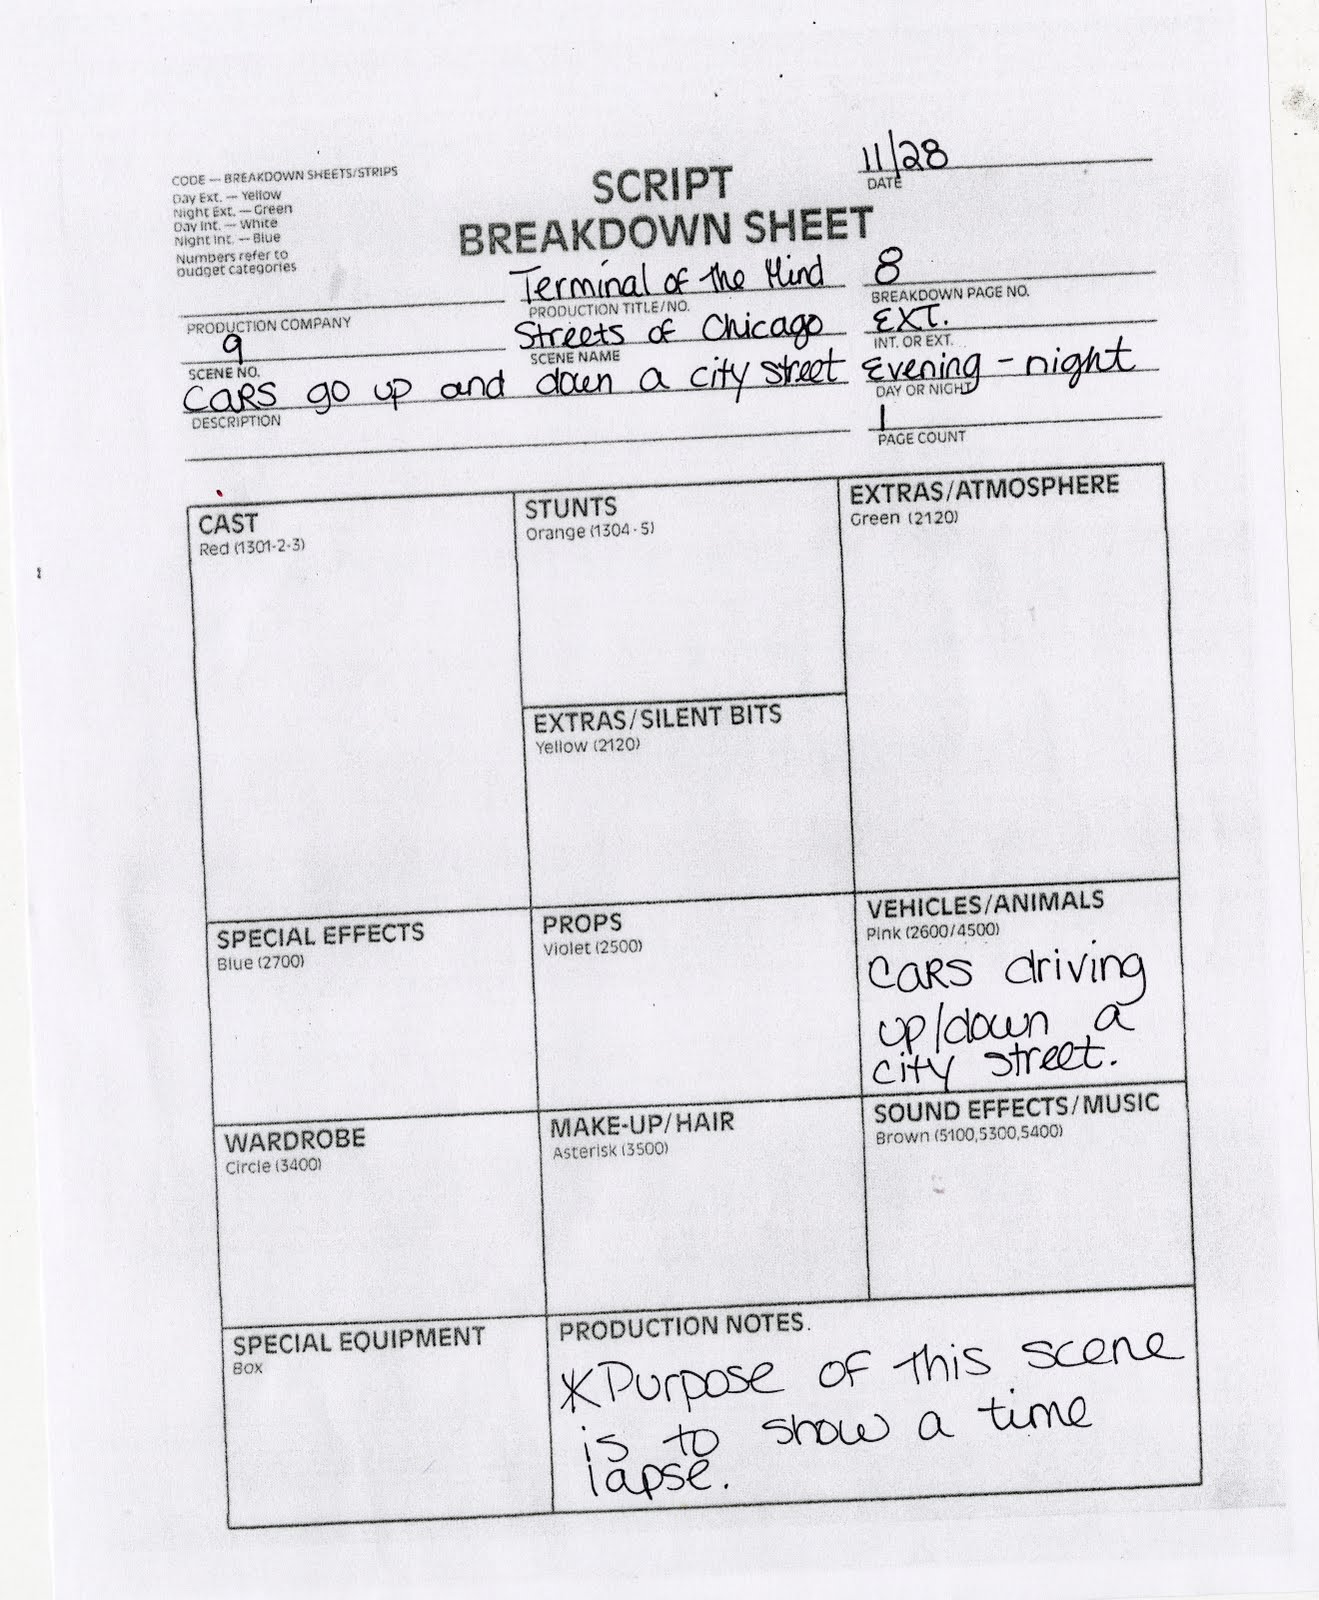 CODE — BREAKDOWN SHEETS/STRIPS
Day Ext. — Yellow
Night Ext. — Green
Day Int. — White
Night Int. — Blue
Numbers refer to
budget categories
SCRIPT
BREAKDOWN SHEET
11/28
DATE
PRODUCTION COMPANY
Terminal of the Mind
PRODUCTION TITLE/NO.
8
BREAKDOWN PAGE NO.
9
SCENE NO.
Streets of Chicago
SCENE NAME
EXT.
INT. OR EXT.
CARS go up and down a city street
DESCRIPTION
Evening - night
DAY OR NIGHT
1
PAGE COUNT
CAST
Red (1301-2-3)
STUNTS
Orange (1304-5)
EXTRAS/ATMOSPHERE
Green (2120)
EXTRAS/SILENT BITS
Yellow (2120)
SPECIAL EFFECTS
Blue (2700)
PROPS
Violet (2500)
VEHICLES/ANIMALS
Pink (2600/4500)
CARS driving
up/down a
city street.
WARDROBE
Circle (3400)
MAKE-UP/HAIR
Asterisk (3500)
SOUND EFFECTS/MUSIC
Brown (5100,5300,5400)
SPECIAL EQUIPMENT
Box
PRODUCTION NOTES.
*Purpose of this scene
is to show a time
lapse.